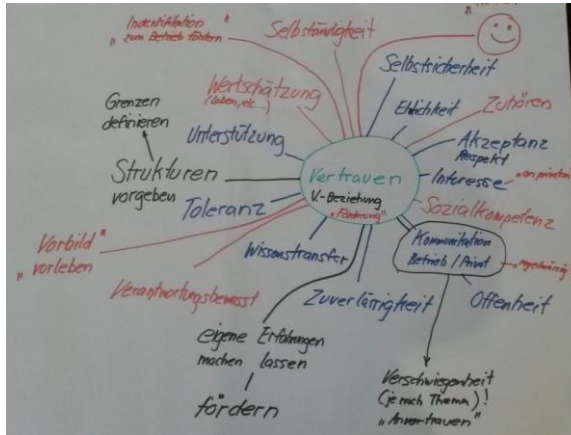 "Indentifikation"
"zum Betrieb fördern"
Selbständigkeit
Selbstsicherheit
Wertschätzung
(loben, etc...)
Ehrlichkeit
Zuhören
Grenzen
definieren
Unterstützung
Akzeptanz
Respekt
Vertrauen
V.-Beziehung
"Förderung"
Interesse
"an privaten
Strukturen
vorgeben
Toleranz
Sozialkompetenz
Kommunikation
Betrieb / Privat
"regelmässig
"Vorbild"
"vorleben
Wissenstransfer
Verantwortungsbewusst
Zuverlässigkeit
Offenheit
eigene Erfahrungen
machen lassen
fördern
Verschwiegenheit
(je nach Thema)!
"Anvertrauen"